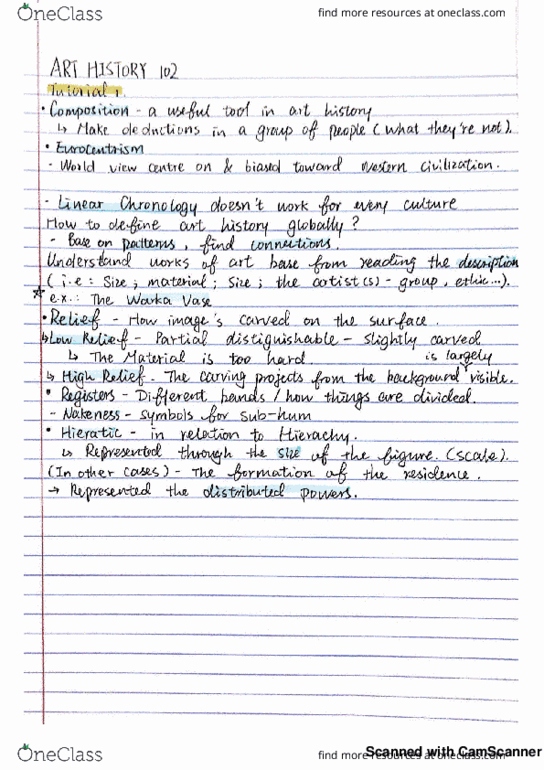 OneClass
find more resources at oneclass.com
ART HISTORY 102
Tutorial 1.
• Composition - a useful tool in art history
↳ Make deductions in a group of people (what they're not).
• Eurocentrism
- World view centre on & biased toward Western civilization.
- Linear Chronology doesn't work for every culture
How to define art history globally?
- Base on patterns, find connections.
Understand works of art base from reading the description
(i.e: Size; material; Size; the artist(s) - group, ethic...).
☆ ex.: The Warka Vase
• Relief - How image's carved on the surface.
↳ Low Relief - Partial distiguishable - slightly carved
↳ The Material is too hard.
is largely
↳ High Relief - The carving projects from the background visible.
• Registers - Different bands / how things are divided.
- Nakeness - symbols for sub-hum
• Hieratic - in relation to Hierachy.
↳ Represented through the size of the figure. (scale).
(In other cases) - The formation of the residence.
→ Represented the distributed powers.
OneClass
find more resources at oneclass.com
Scanned with CamScanner